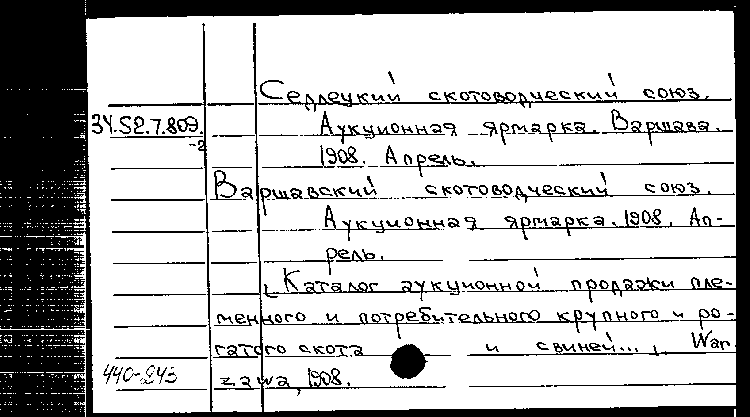 Седлецкий скотоводческий союз.
34.52.7.809. Аукционная ярмарка. Варшава.
-2 1908. Апрель.
Варшавский скотоводческий союз.
Аукционная ярмарка. 1908. Ап-
рель.
Каталог аукционной продажи пле-
менного и потребительного крупного и ро-
гатого скота и свиней... , War.
440-243 zawa, 1908.